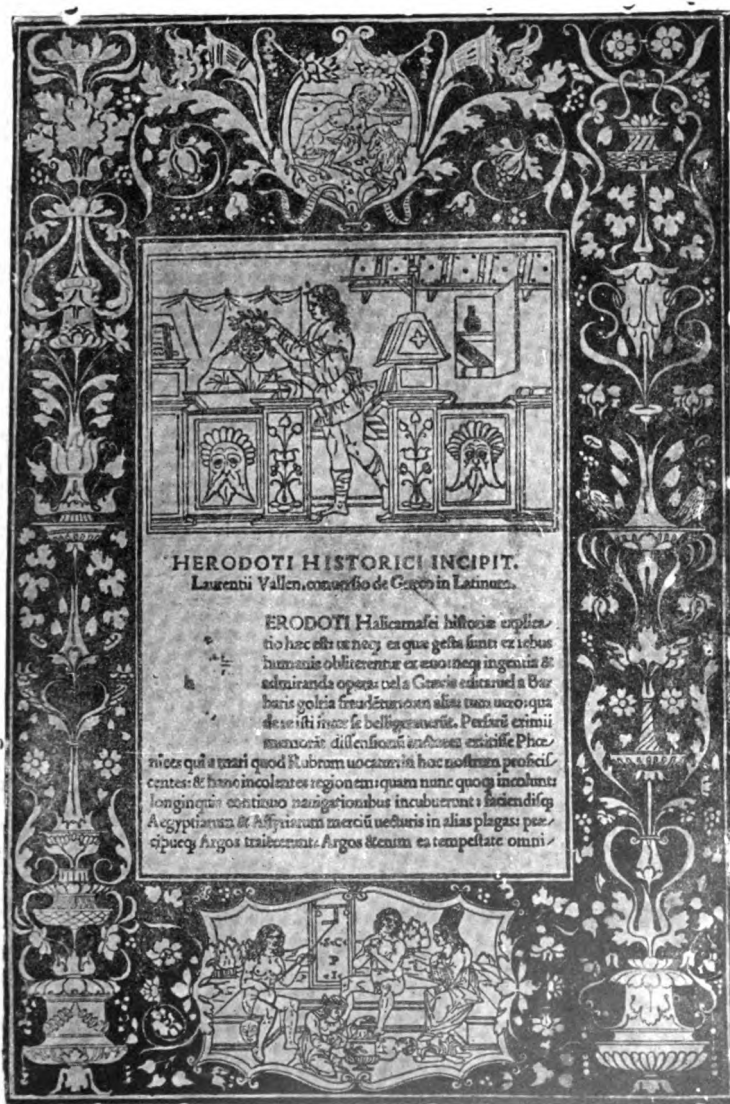 HERODOTI HISTORICI INCIPIT.
Laurentii Vallen. conuersio de Græco in Latinum.
ERODOTI Halicarnasei historiæ explica/
tio hæc est: ut neq; ea quæ gesta sunt: ex rebus
humanis obliterentur ex æuo: neq; ingentia &
admiranda opera: uel a Græcis edita: uel a Bar
baris gloria fraudentur: cum alia: tum uero: qua
de re isti inter se belligerauerūt. Persarū eximii
memorāt dissensionū auctores extitisse Phœ
nices qui a mari quod Rubrum uocatur: in hoc nostrum proficis
centes: & hanc incolentes regionem: quam nunc quoq; incolunt:
longinquis continuo nauigationibus incubuerunt: faciendisq;
Aegyptiarum & Assyriarum merciū uecturis in alias plagas: præ/
cipueq; Argos traiecerunt: Argos &enim ea tempestate omni/